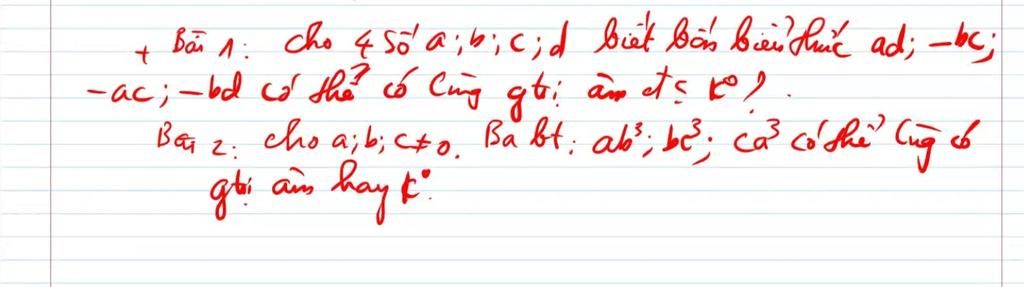 + Bài 1: cho 4 số a; b; c; d biết bốn biểu thức ad; -bc;
-ac; -bd có thể có cùng gtrị âm đc k° ?.
Bài 2: cho a; b; c ≠ 0. Ba bt: ab³; bc³; ca³ có thể cùng có
gtrị âm hay k°.